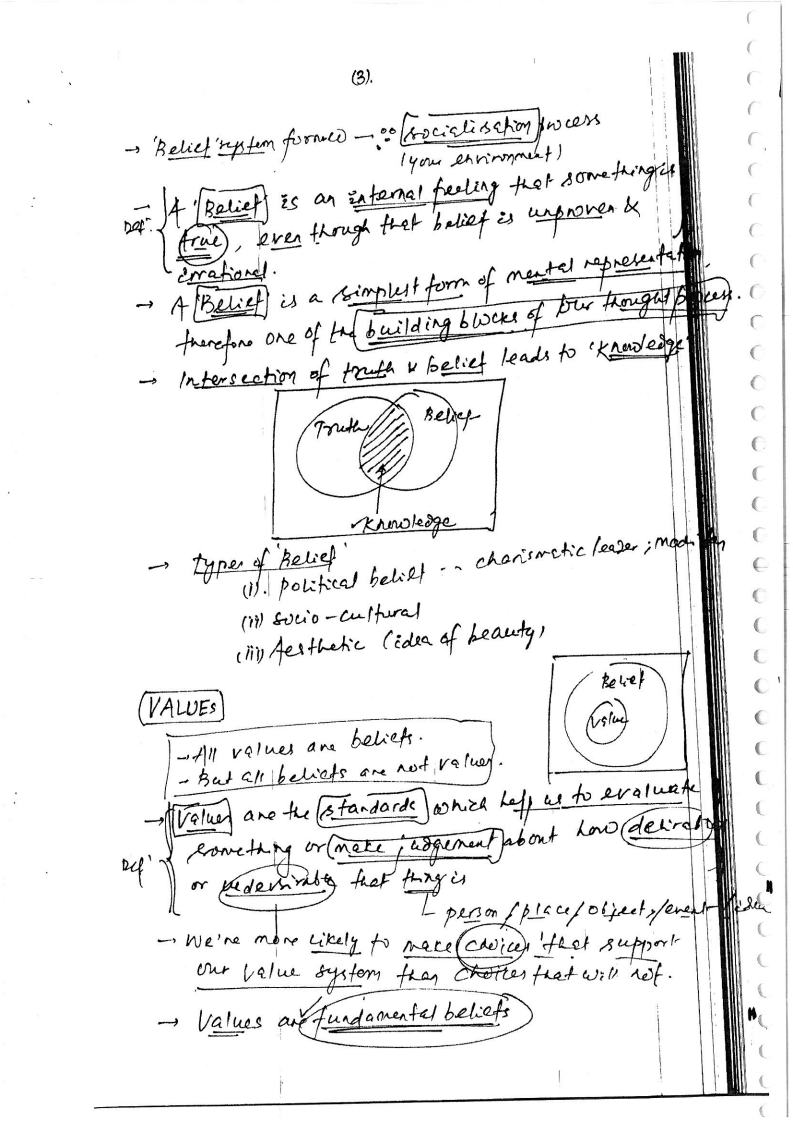 (3).
→ 'Belief' system formed → ∵ socialisation process
(your environment)
→ A 'Belief' is an internal feeling that something is
Def'.
true, even though that belief is unproven &
irrational.
→ A 'Belief' is a simplest form of mental representation,
therefore one of the building blocks of our thought process.
→ Intersection of truth & belief leads to 'Knowledge'
Truth Belief
Knowledge
→ Types of 'Belief'
(i). Political belief -- charismatic leader;
(ii) socio-cultural
(iii) Aesthetic (idea of beauty)
Belief
Value
VALUES
→ All values are beliefs.
- But all beliefs are not values.
→ Values are the standards which help us to evaluate
something or make judgement about how desirable
Def'
or undesirable that thing is
person/place/object/event/idea
→ We're more likely to make choices that support
our value system than choices that will not.
→ Values are fundamental beliefs